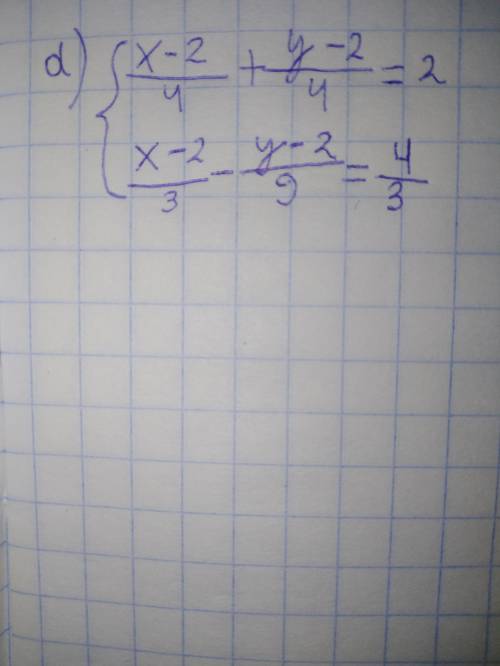 d) { (x-2)/4 + (y-2)/4 = 2
(x-2)/3 - (y-2)/9 = 4/3